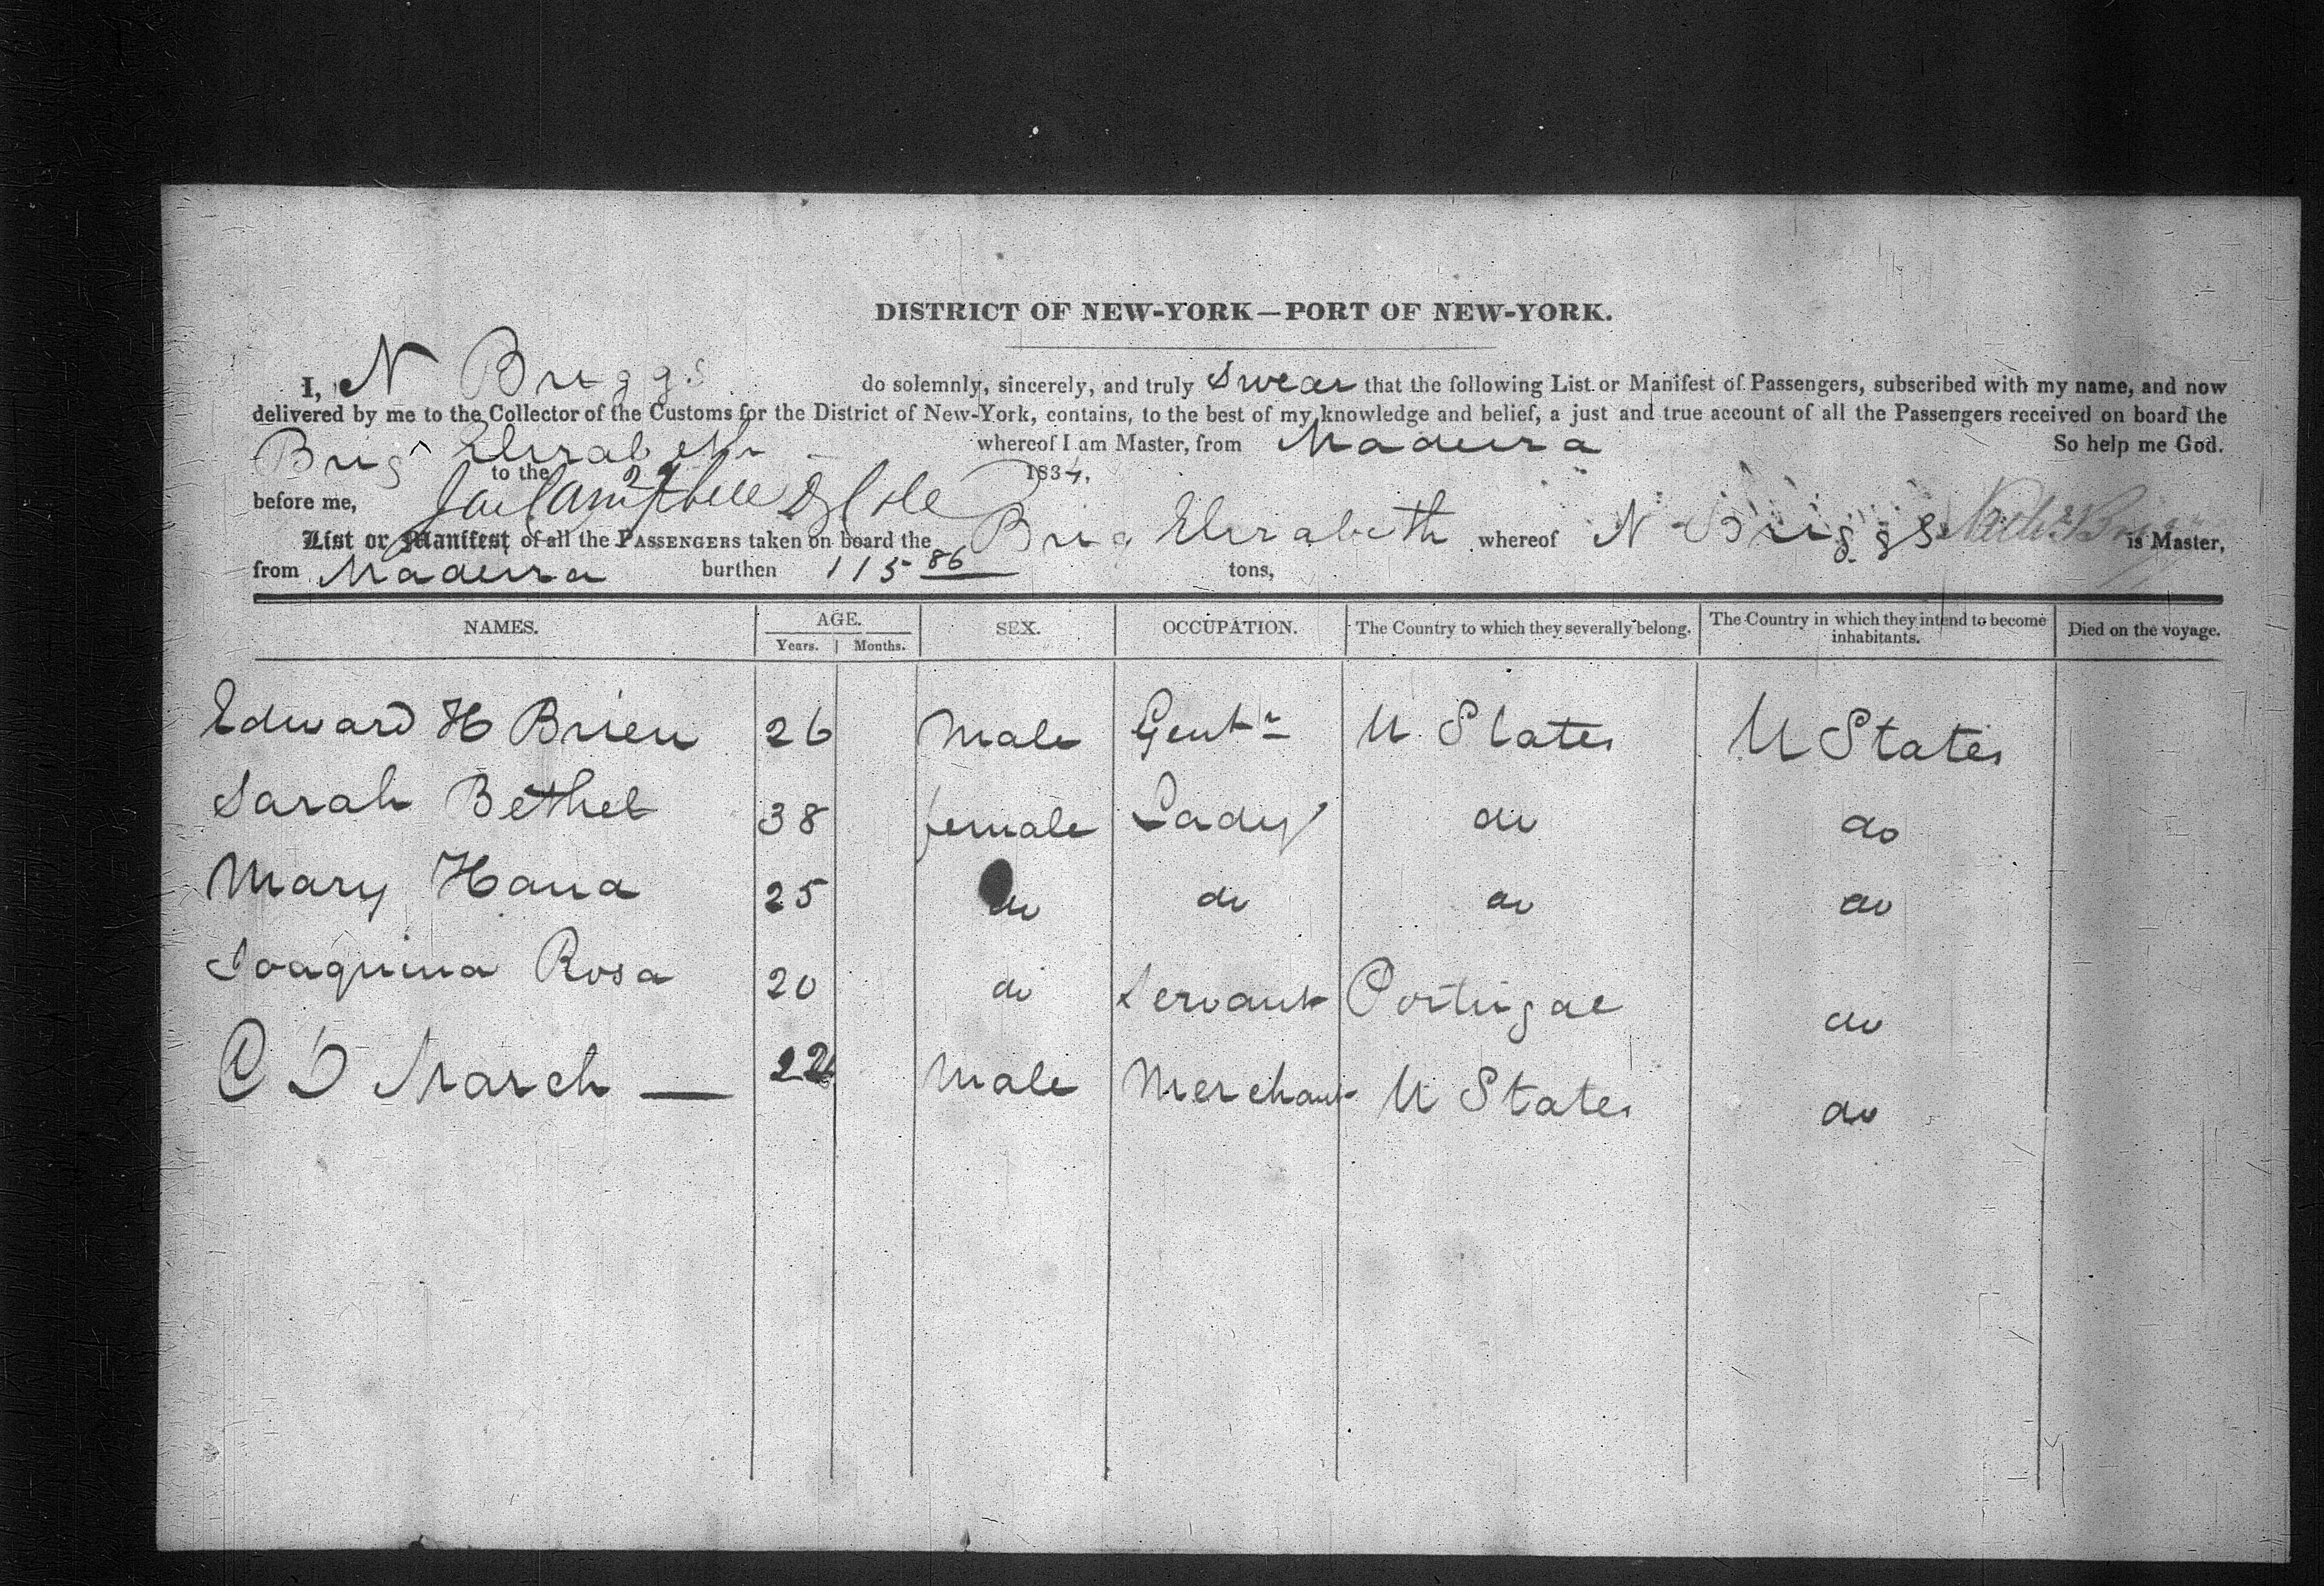 DISTRICT OF NEW-YORK—PORT OF NEW-YORK.
I, N Briggs do solemnly, sincerely, and truly Swear that the following List or Manifest of Passengers, subscribed with my name, and now
delivered by me to the Collector of the Customs for the District of New-York, contains, to the best of my knowledge and belief, a just and true account of all the Passengers received on board the
Brig Elizabeth whereof I am Master, from Madeira So help me God.
to the 1834.
before me,
List or Manifest of all the PASSENGERS taken on board the Brig Elizabeth whereof N Briggs is Master,
from Madeira burthen 115 86 tons,
NAMES. AGE. Years. Months. SEX. OCCUPATION. The Country to which they severally belong. The Country in which they intend to become inhabitants. Died on the voyage.
Edward H Brien 26 Male Gentn U States U States
Sarah Bethel 38 female Lady do do
Mary Hana 25 do do do do
Joaquina Rosa 20 do Servant Portugal do
C D March — 22 Male Merchant U States do